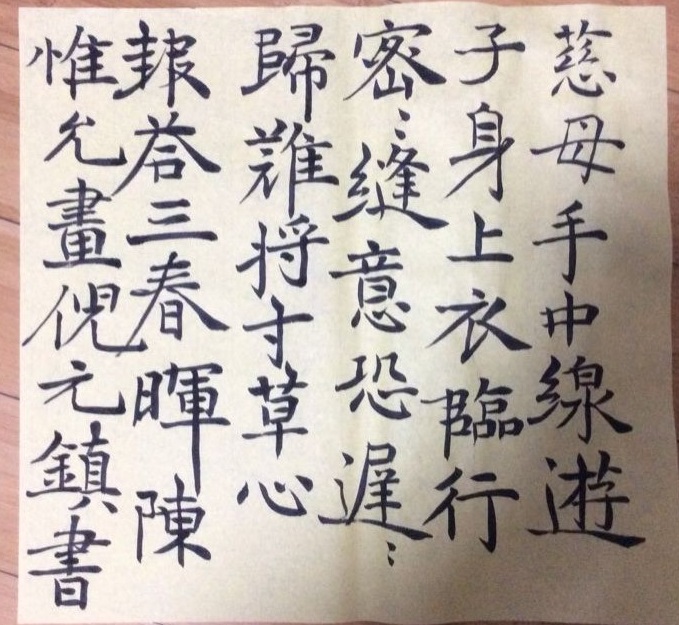 慈母手中線遊
子身上衣臨行
密〻縫意恐遲〻
歸難将寸草心
報荅三春暉陳
惟允畫倪元鎮書